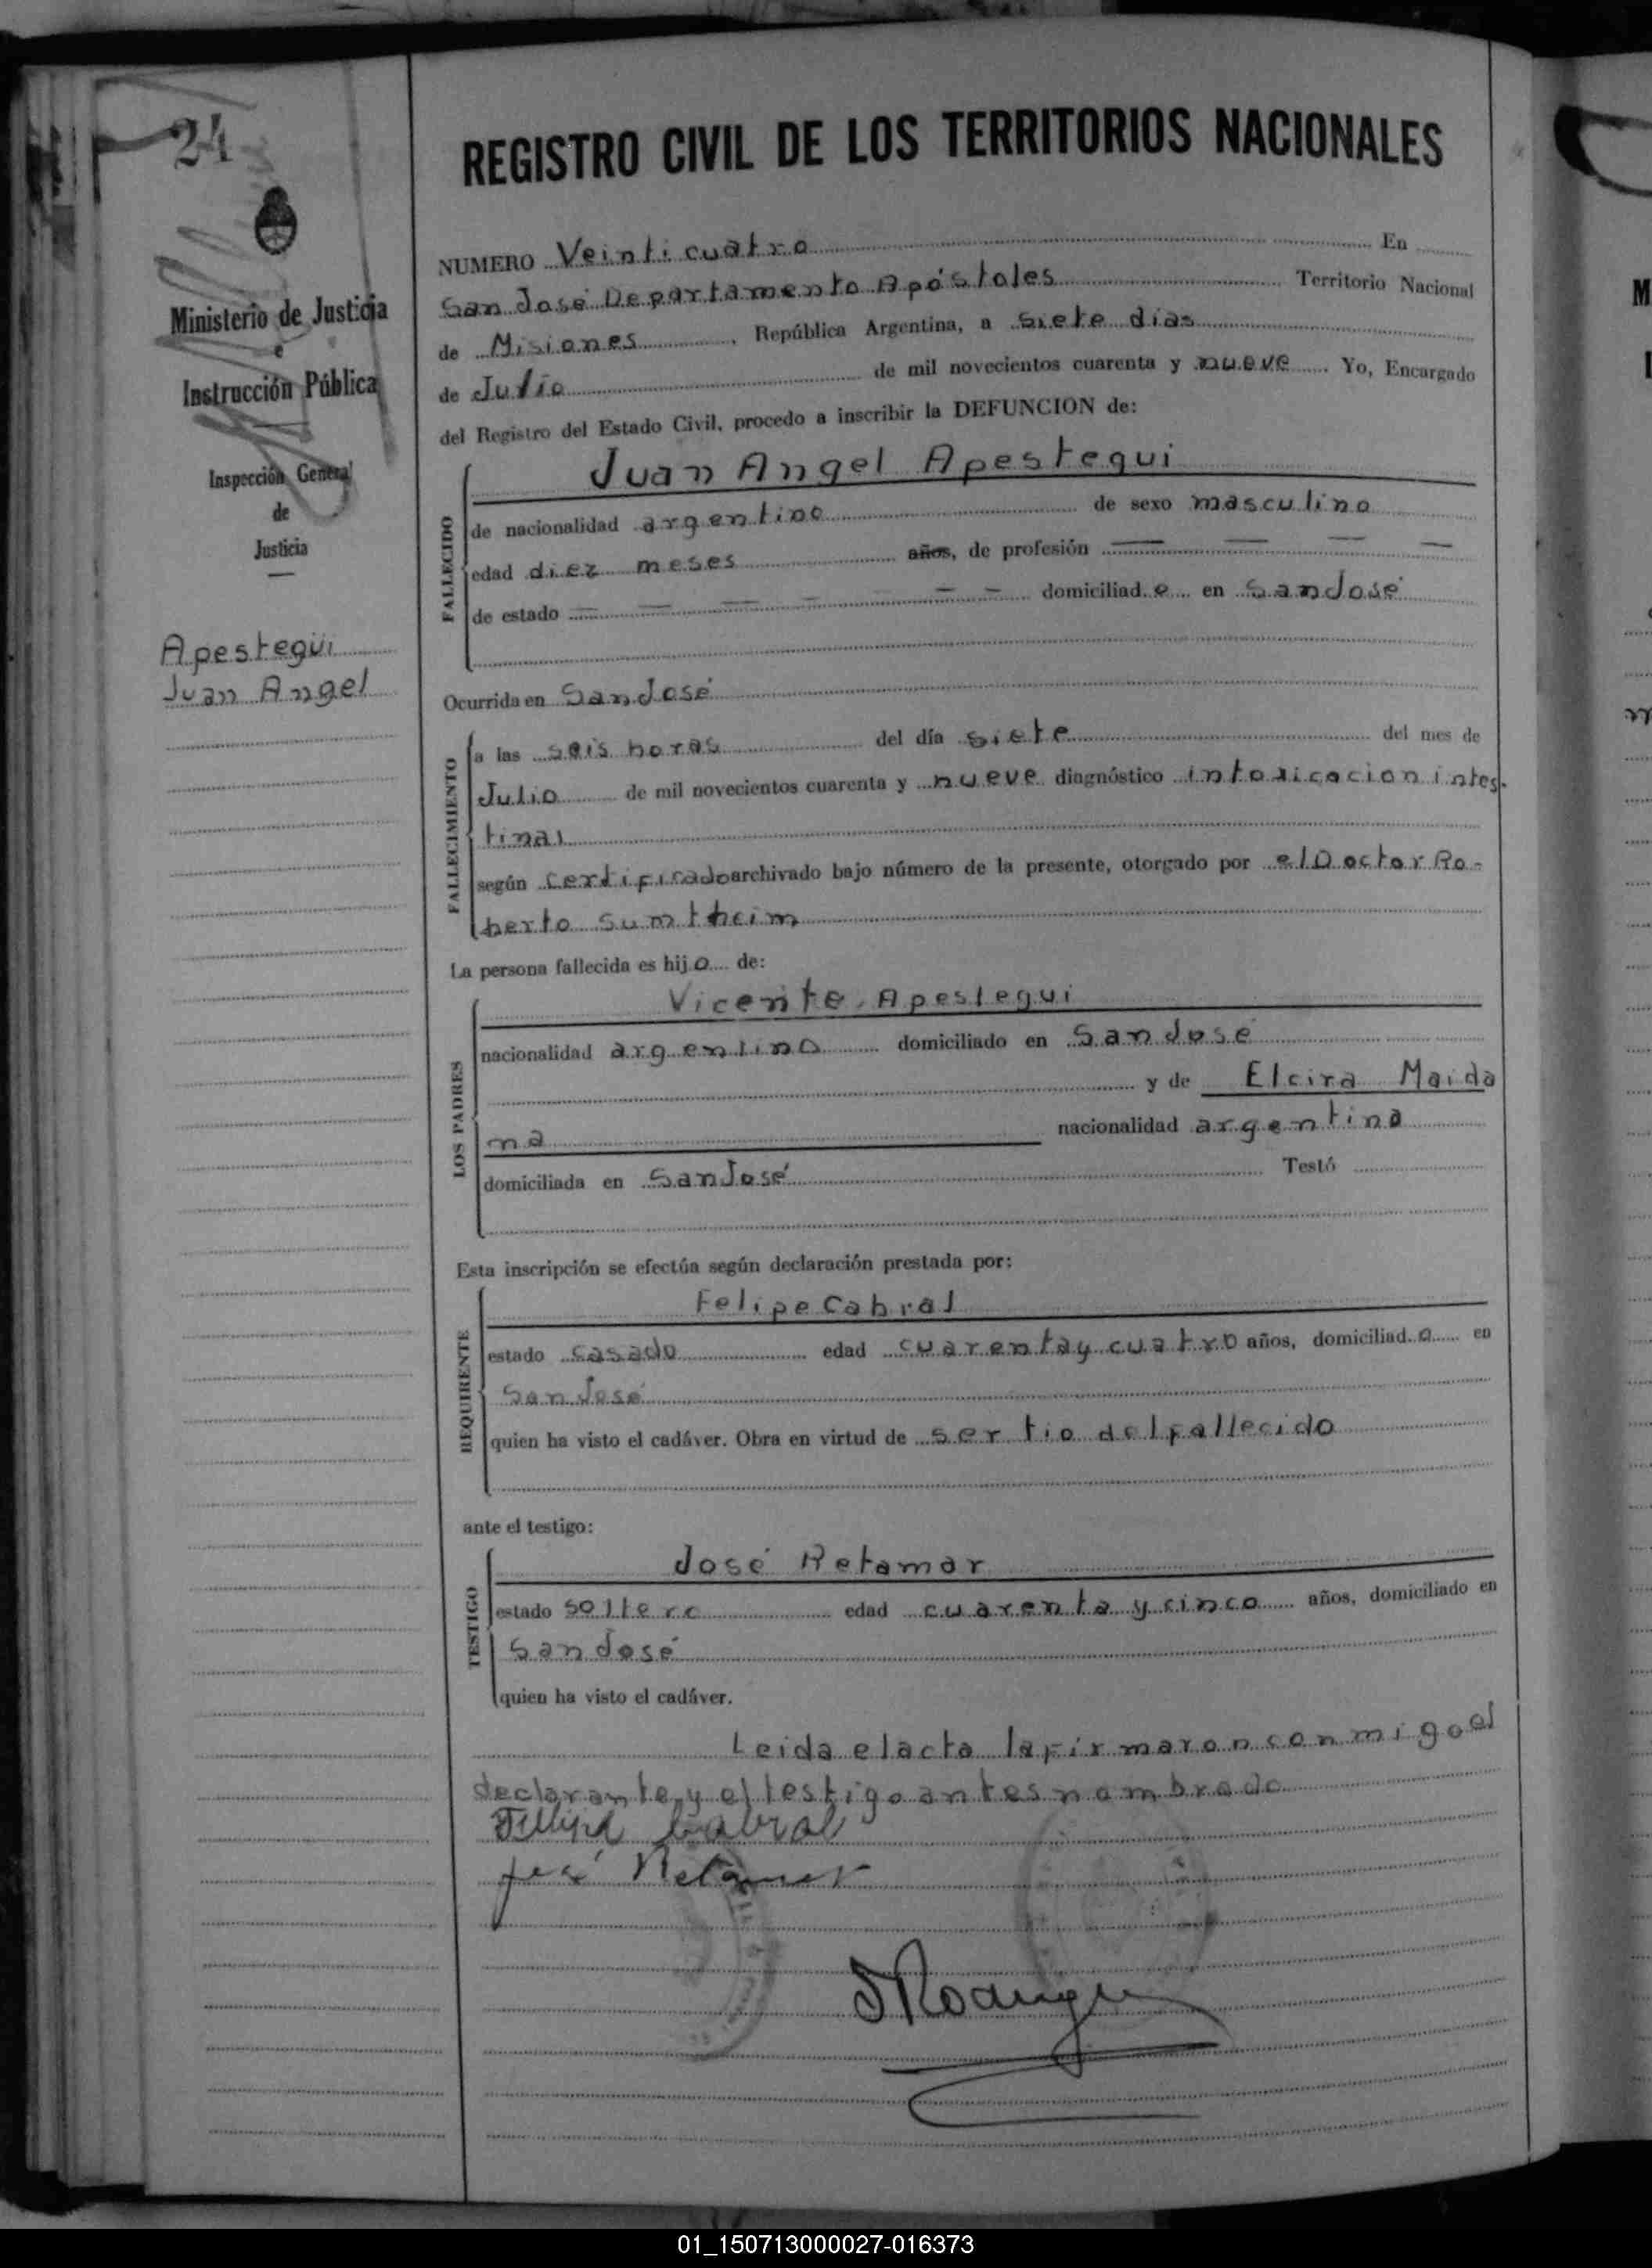 24
Ministerio de Justicia
e
Instrucción Pública
Inspección General
de
Justicia
Apestegui
Juan Angel
REGISTRO CIVIL DE LOS TERRITORIOS NACIONALES
NUMERO Veinticuatro En
San José Departamento Apóstoles Territorio Nacional
de Misiones, República Argentina, a siete dias
de Julio de mil novecientos cuarenta y nueve. Yo, Encargado
del Registro del Estado Civil, procedo a inscribir la DEFUNCION de:
FALLECIDO
Juan Angel Apestegui
de nacionalidad argentino de sexo masculino
edad diez meses años, de profesión — — — —
de estado — — — — — — domiciliado en San José
Ocurrida en San José
FALLECIMIENTO
a las seis horas del día siete del mes de
Julio de mil novecientos cuarenta y nueve diagnóstico intoxicacion intes-
tinal
según certificado archivado bajo número de la presente, otorgado por el Doctor Ro-
berto Sumtheim
La persona fallecida es hijo de:
LOS PADRES
Vicente Apestegui
nacionalidad argentino domiciliado en San José
y de Elcira Maida
na nacionalidad argentina
domiciliada en San José Testó
Esta inscripción se efectúa según declaración prestada por:
REQUIRENTE
Felipe Cabral
estado casado edad cuarenta y cuatro años, domiciliado en
San José
quien ha visto el cadáver. Obra en virtud de ser tio del fallecido
ante el testigo:
TESTIGO
José Retamar
estado soltero edad cuarenta y cinco años, domiciliado en
San José
quien ha visto el cadáver.
Leida el acta la firmaron conmigo el
declarante y el testigo antes nombrado
Fellipe Cabral
José Retamar
Rodriguez
01_150713000027-016373